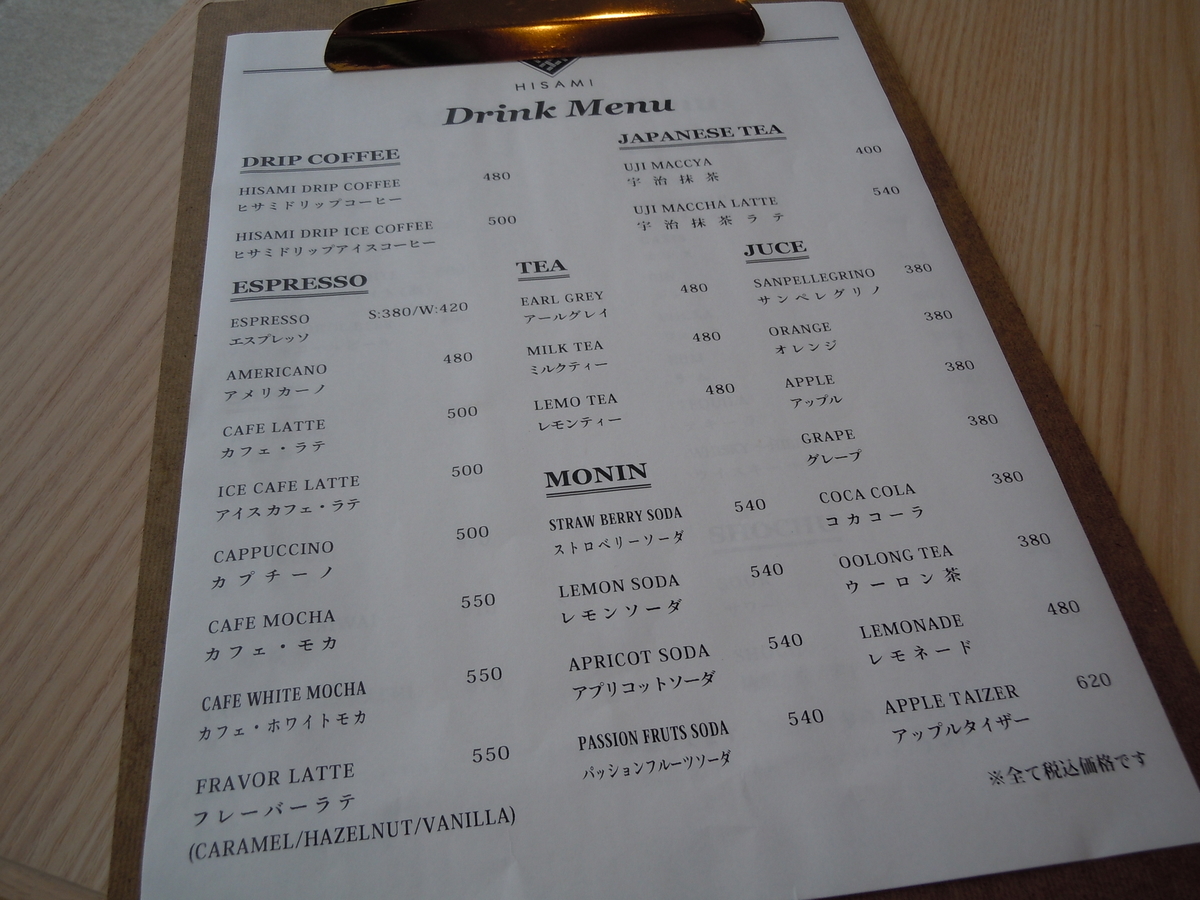 HISAMI
Drink Menu
DRIP COFFEE
HISAMI DRIP COFFEE 480
ヒサミドリップコーヒー
HISAMI DRIP ICE COFFEE 500
ヒサミドリップアイスコーヒー
ESPRESSO
ESPRESSO S:380/W:420
エスプレッソ
AMERICANO 480
アメリカーノ
CAFE LATTE 500
カフェ・ラテ
ICE CAFE LATTE 500
アイスカフェ・ラテ
CAPPUCCINO 500
カプチーノ
CAFE MOCHA 550
カフェ・モカ
CAFE WHITE MOCHA 550
カフェ・ホワイトモカ
FRAVOR LATTE 550
フレーバーラテ
(CARAMEL/HAZELNUT/VANILLA)
TEA
EARL GREY 480
アールグレイ
MILK TEA 480
ミルクティー
LEMO TEA 480
レモンティー
MONIN
STRAW BERRY SODA 540
ストロベリーソーダ
LEMON SODA 540
レモンソーダ
APRICOT SODA 540
アプリコットソーダ
PASSION FRUTS SODA 540
パッションフルーツソーダ
JAPANESE TEA
UJI MACCYA 400
宇治抹茶
UJI MACCHA LATTE 540
宇治抹茶ラテ
JUCE
SANPELLEGRINO 380
サンペレグリノ
ORANGE 380
オレンジ
APPLE 380
アップル
GRAPE 380
グレープ
COCA COLA 380
コカコーラ
OOLONG TEA 380
ウーロン茶
LEMONADE 480
レモネード
APPLE TAIZER 620
アップルタイザー
※全て税込価格です